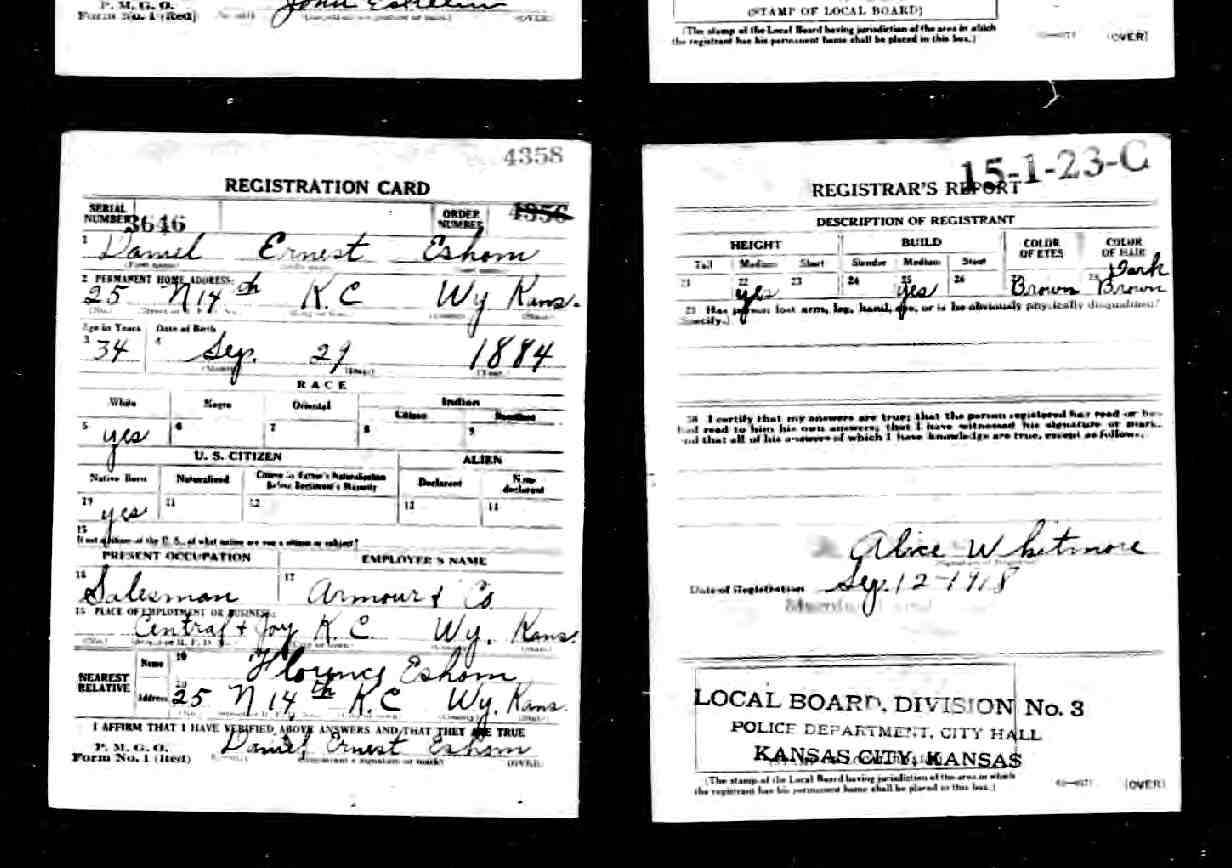 P. M. G. O.
Form No. 1 (Red)
(OVER)
(STAMP OF LOCAL BOARD)
(The stamp of the Local Board having jurisdiction of the area in which
the registrant has his permanent home shall be placed in this box.)
(OVER)
4358
REGISTRATION CARD
SERIAL NUMBER 3646 ORDER NUMBER 4356
1 Daniel Ernest Eshom
2 PERMANENT HOME ADDRESS:
25 N 14th K.C Wy Kans.
Age in Years Date of Birth
3 34 4 Sep. 29 1884
RACE
White Negro Oriental Indian
Citizen
5 yes 6 7 8 9
U. S. CITIZEN ALIEN
Native Born Naturalized Citizen by Father's Naturalization Before Registrant's Majority Declarant Non-declarant
10 yes 11 12 13 14
15
If not a citizen of the U. S., of what nation are you a citizen or subject?
PRESENT OCCUPATION EMPLOYER'S NAME
16 Salesman 17 Armour & Co
18 PLACE OF EMPLOYMENT OR BUSINESS:
Central & Joy K.C Wy. Kans.
NEAREST RELATIVE
Name 19 Florence Eshom
Address 20 25 N 14th K.C Wy. Kans.
I AFFIRM THAT I HAVE VERIFIED ABOVE ANSWERS AND THAT THEY ARE TRUE
P. M. G. O.
Form No. 1 (Red) Daniel Ernest Eshom
(Registrant's signature or mark) (OVER)
15-1-23-C
REGISTRAR'S REPORT
DESCRIPTION OF REGISTRANT
HEIGHT BUILD COLOR OF EYES COLOR OF HAIR
Tall Medium Short Slender Medium Stout
21 22 yes 23 24 25 yes 26 27 Brown 28 Dark Brown
29 Has person lost arm, leg, hand, eye, or is he obviously physically disqualified?
(Specify.)
30 I certify that my answers are true; that the person registered has read or has
had read to him his own answers; that I have witnessed his signature or mark,
and that all of his answers of which I have knowledge are true, except as follows:
Alice Whitmore
(Signature of Registrar)
Date of Registration Sep. 12-1918
LOCAL BOARD, DIVISION No. 3
POLICE DEPARTMENT, CITY HALL
KANSAS CITY, KANSAS
(The stamp of the Local Board having jurisdiction of the area in which
the registrant has his permanent home shall be placed in this box.)
(OVER)